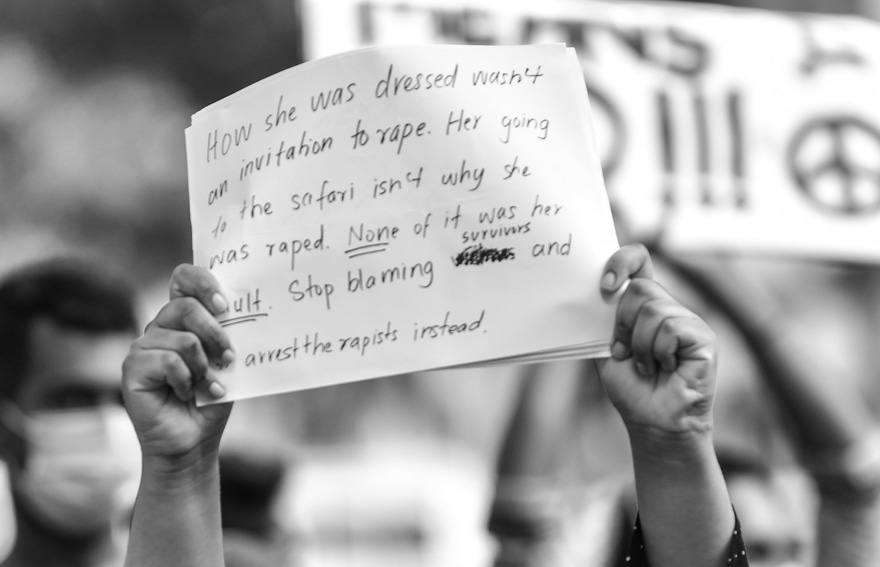 How she was dressed wasn't
an invitation to rape. Her going
to the safari isn't why she
was raped. None of it was her
ault. Stop blaming survivors and
arrest the rapists instead.
!!!